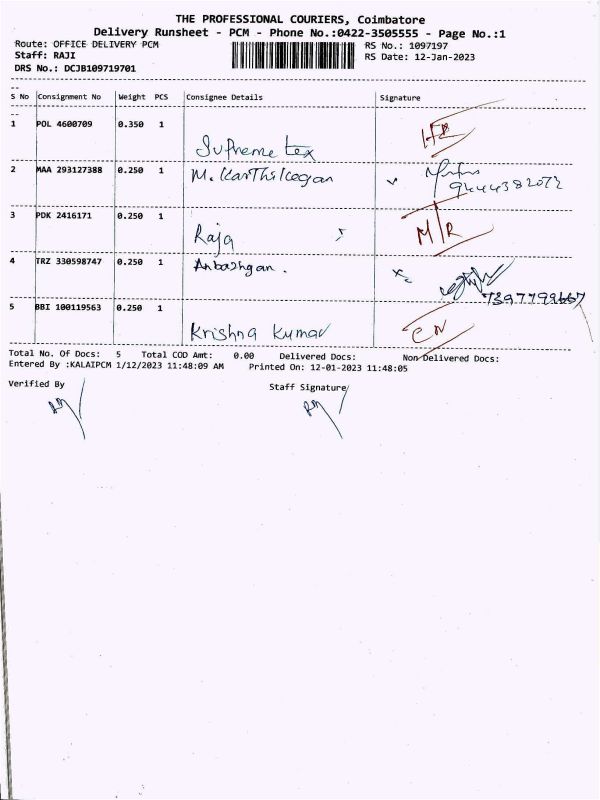 THE PROFESSIONAL COURIERS, Coimbatore
Delivery Runsheet - PCM - Phone No.:0422-3505555 - Page No.:1
Route: OFFICE DELIVERY PCM
Staff: RAJI
DRS No.: DCJB109719701
RS No.: 1097197
RS Date: 12-Jan-2023
S No Consignment No Weight PCS Consignee Details Signature
1 POL 4600709 0.350 1 Supreme tex
2 MAA 293127388 0.250 1 M. Karthikegan
9444382072
3 PDK 2416171 0.250 1 Raja M/R
4 TRZ 330598747 0.250 1 Anbazhgan.
7397799667
5 BBI 100119563 0.250 1 Krishna Kumar CN
Total No. Of Docs: 5 Total COD Amt: 0.00 Delivered Docs: Non Delivered Docs:
Entered By :KALAIPCM 1/12/2023 11:48:09 AM Printed On: 12-01-2023 11:48:05
Verified By Staff Signature